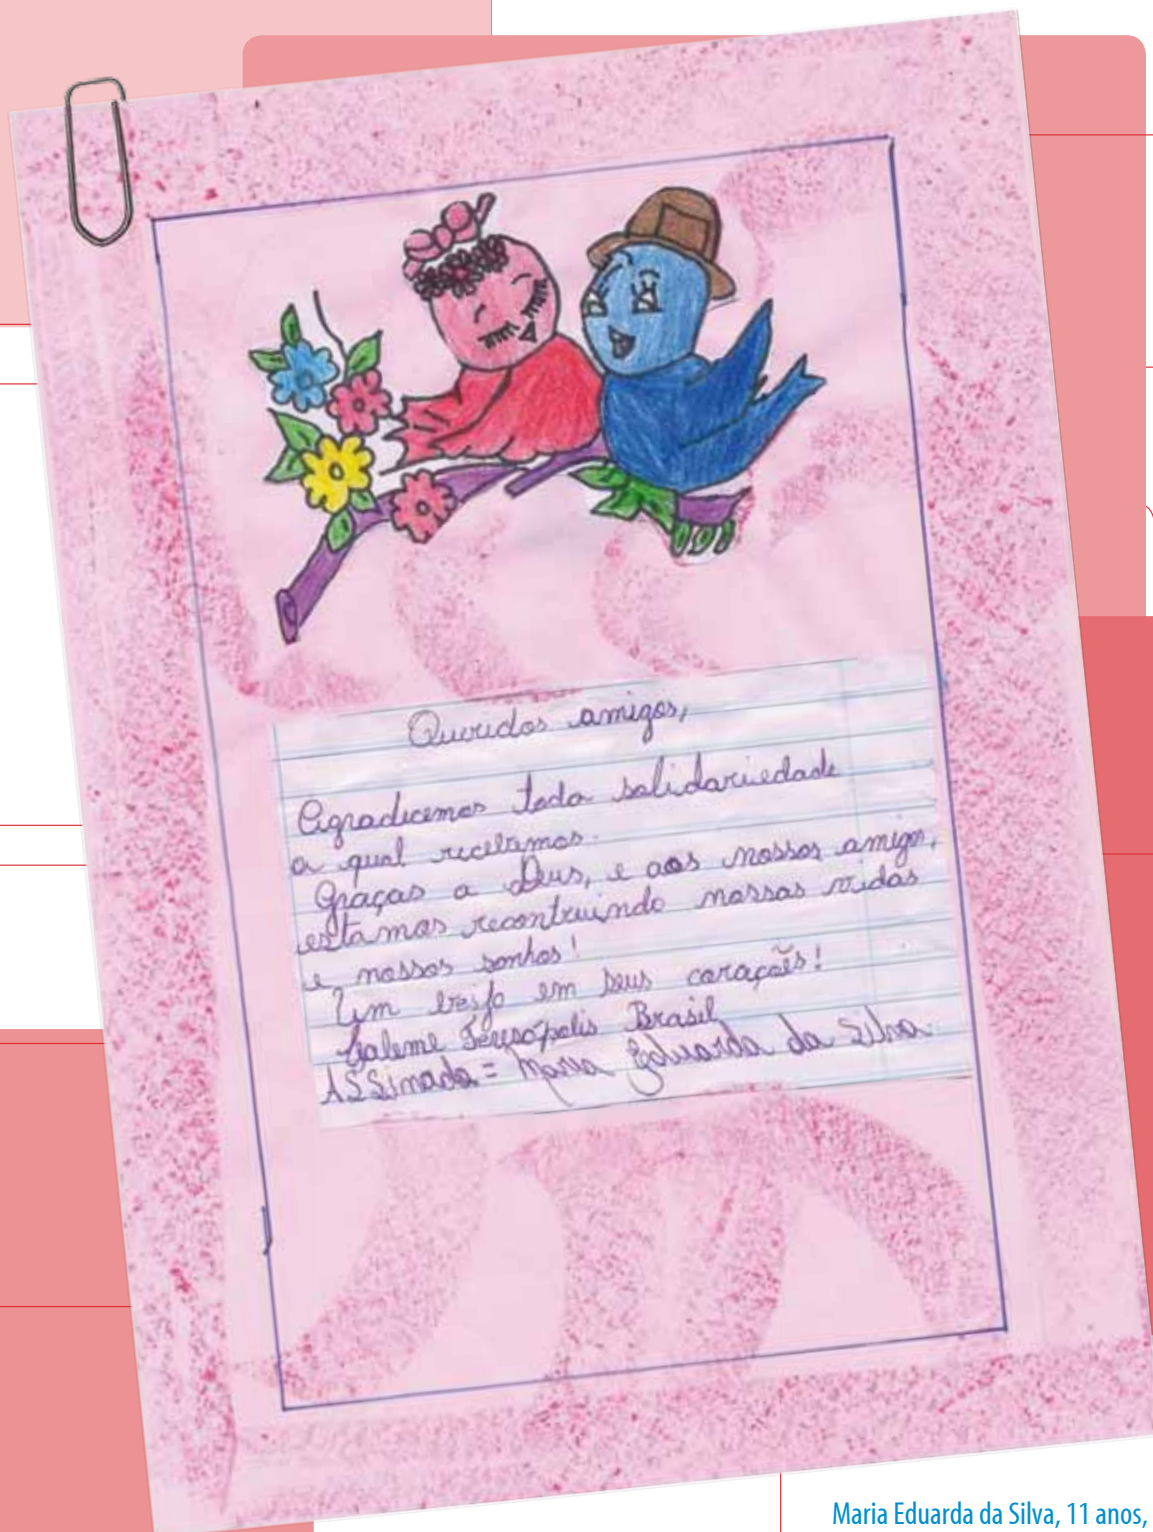 Queridos amigos,
Agradecemos toda solidariedade
a qual recebemos.
Graças a Deus, e aos nossos amigos,
estamos recontruindo nossas vidas
e nossos sonhos!
Um beijo em seus corações!
Caleme Teresópolis Brasil
ASSinada = Maria Eduarda da Silva
Maria Eduarda da Silva, 11 anos,